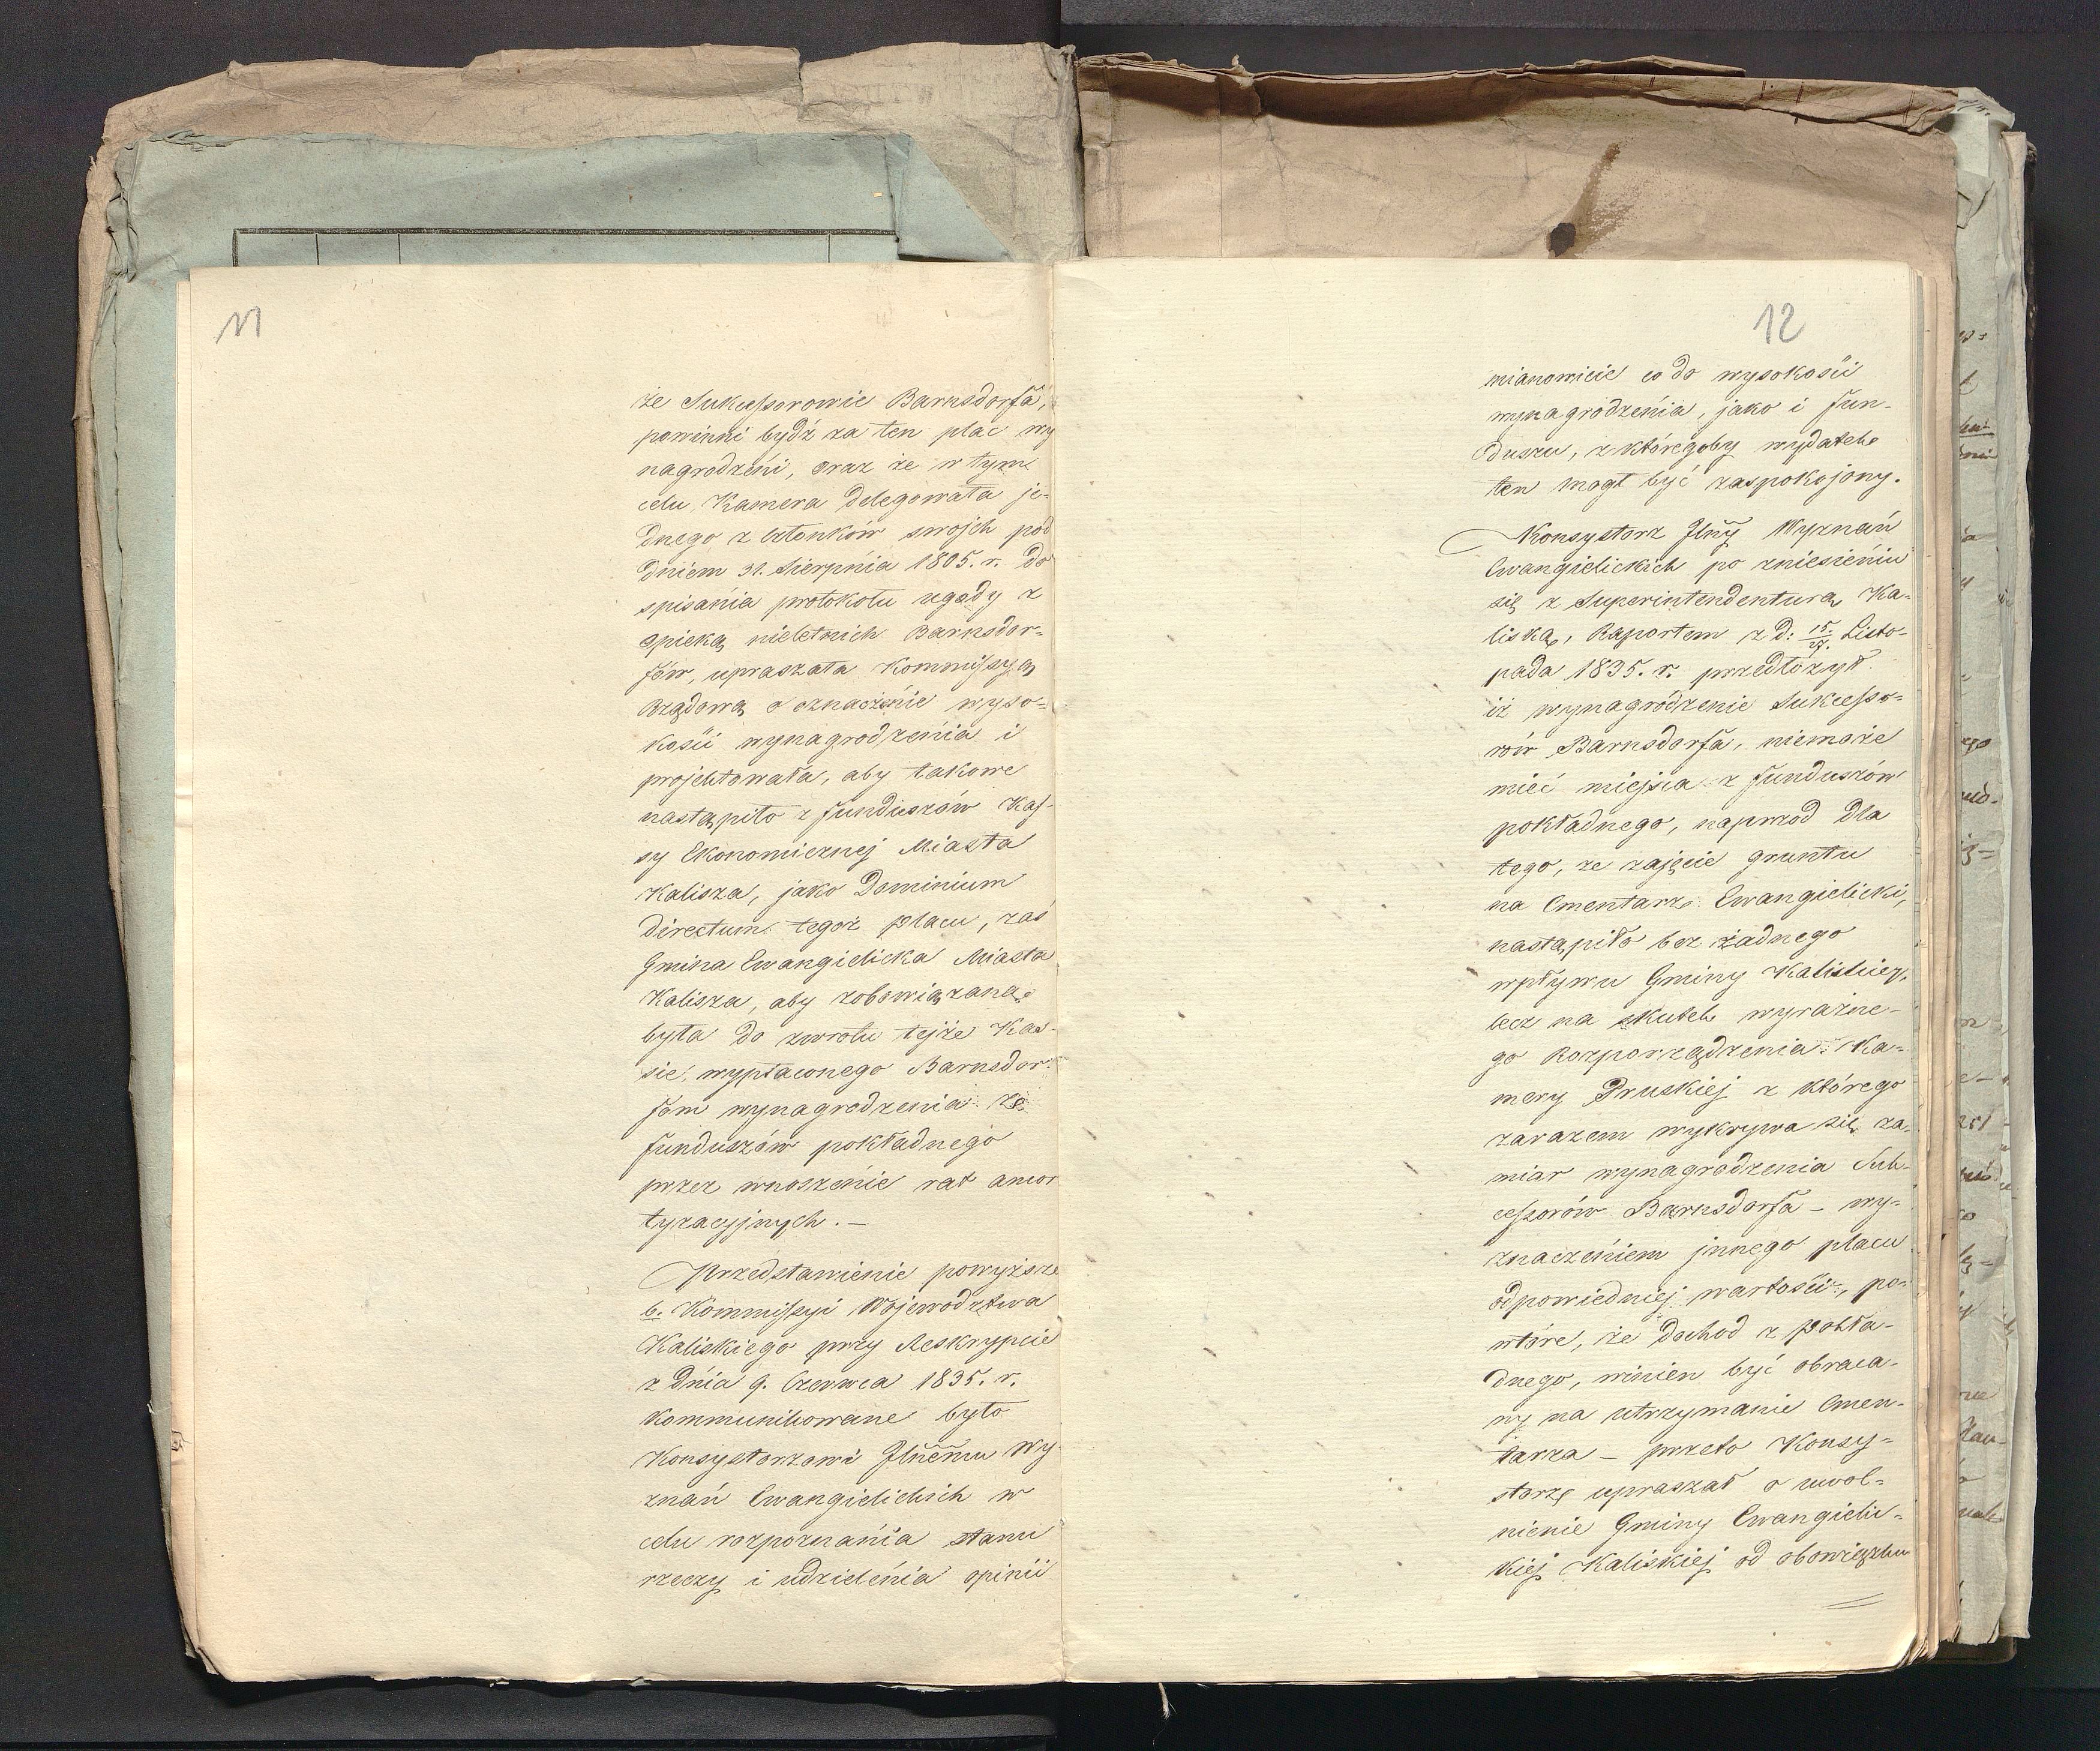 11
że Sukcessorowie Barnsdorfa,
powinni bydź za ten plac wy
nagrodzeni, oraz że w tym
celu Kamera delegowała je-
dnego z członków swojch pod
dniem 31. Sierpnia 1805. r. do
spisania protokołu ugody z
opieką nieletnich Barnsdor=
fów, upraszała Kommissyą
Rządową o oznaczenie wyso=
kości wynagrodzenia i
projektowała, aby takowe
nastąpiło z funduszów Kas-
sy Ekonomicznej Miasta
Kalisza, jako Dominium
Directum tegoż placu, zaś
Gmina Ewangielicka Miasta
Kalisza, aby zobowiązana
była do zwrotu tejże Kas-
sie, wypłaconego Barnsdor=
fom wynagrodzenia ze
funduszów pokładnego
przez wnoszenie rat amor
tyzacyjnych. —
Przedstawienie powyższe
b. Kommissyi Wojewodztwa
Kaliskiego przy Reskrypcie
z dnia 9. Czerwca 1835. r.
kommunikowane było
Konsystorzowi Jlnemu Wy-
znań Ewangielickich w
celu rozpoznania stanu
rzeczy i udzielenia opinii
12
mianowicie co do wysokości
wynagrodzenia, jako i fun-
duszu, z któregoby wydatek
ten mogł być zaspokojony.
Konsystorz Jlny Wyznań
Ewangielickich po zniesieniu
się z Superintendenturą Ka-
liską, Raportem z d: 15/27. Listo-
pada 1835. r. przedłożył
iż wynagrodzenie Sukcesso=
rów Barnsdorfa, niemoże
mieć miejsca z funduszów
pokładnego, naprzod dla
tego, że zajęcie gruntu
na Cmentarz Ewangielicki,
nastąpiło bez żadnego
wpływu Gminy Kaliskiej,
lecz na skutek wyraźne-
go Rozporządzenia Ka=
mery Pruskiej z którego
zarazem wykrywa się za-
miar wynagrodzenia Suk-
cessorów Barnsdorfa – wy=
znaczeniem jnnego placu
odpowiedniej wartości, po=
wtóre, że dochod z pokła-
dnego, winien być obraca-
ny na utrzymanie Cmen-
tarza – przeto Konsy=
storz upraszał o uwol=
nienie Gminy Ewangielic-
kiej Kaliskiej od obowiązku